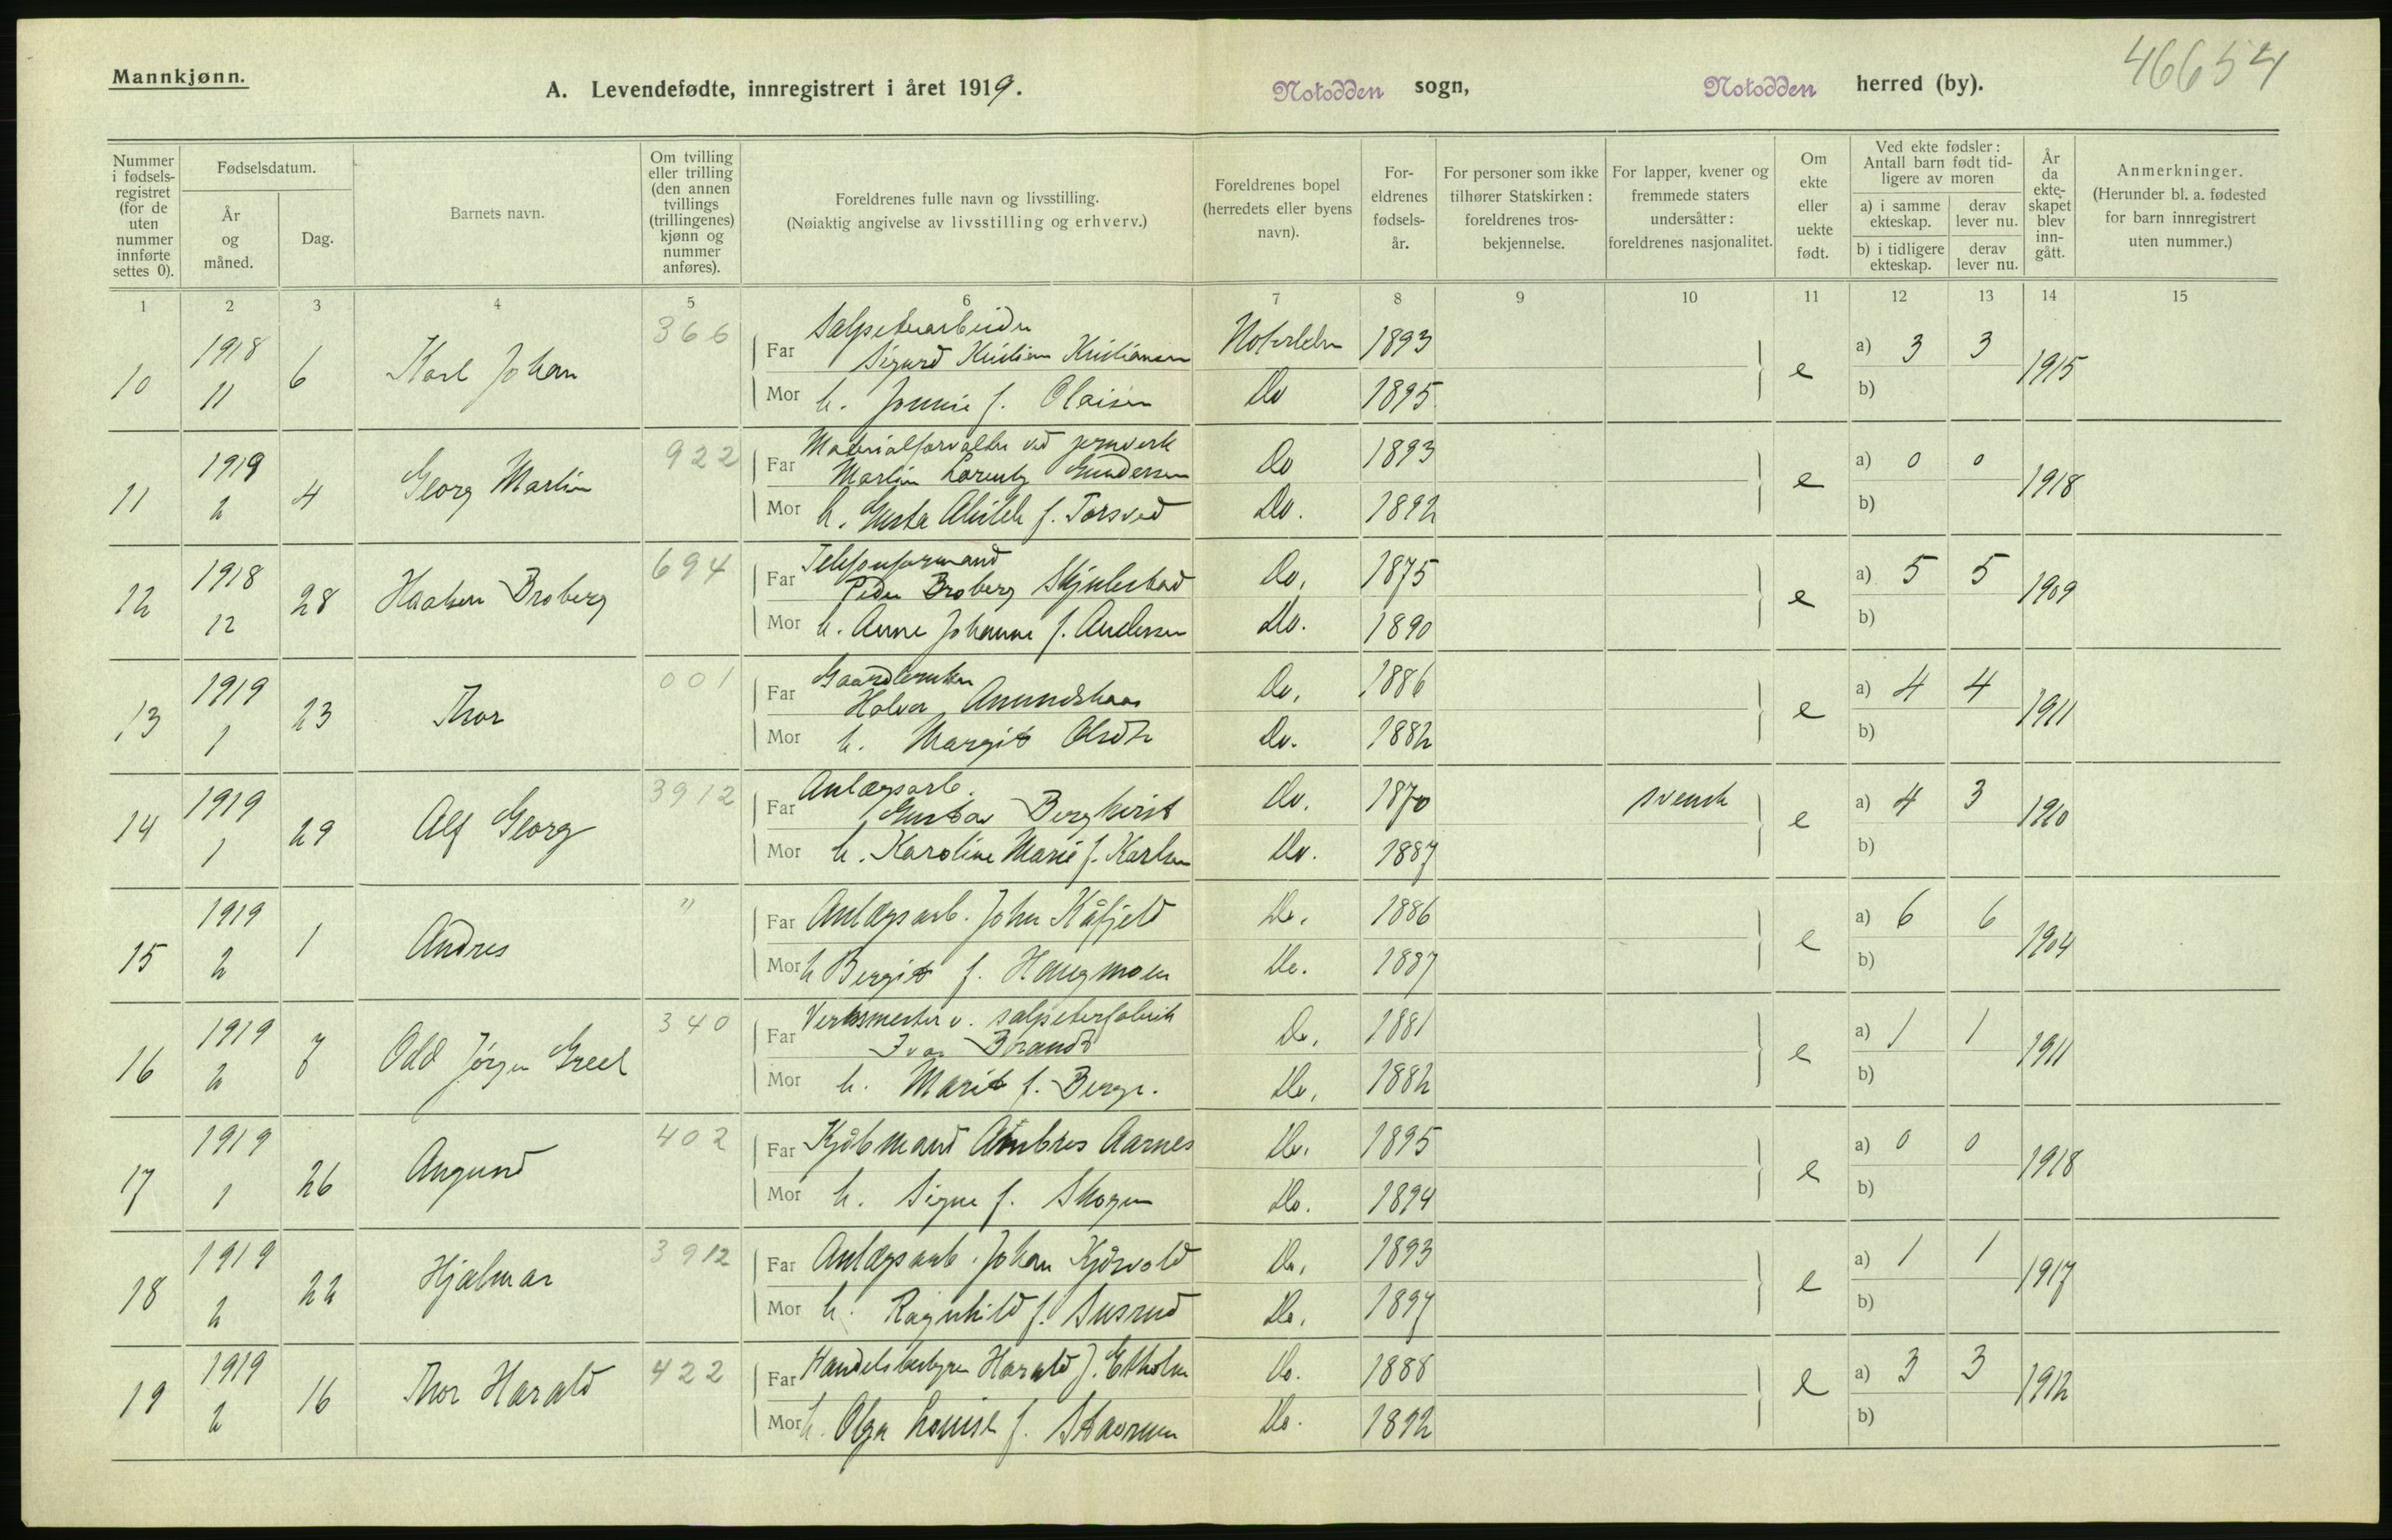 46654
Mannkjønn.
A. Levendefødte, innregistrert i året 1919.
Notodden sogn,
Notodden herred (by).
Nummer i fødsels-registret (for de uten nummer innførte settes 0).
Fødselsdatum.
År og måned.
Dag.
Barnets navn.
Om tvilling eller trilling (den annen tvillings (trillingenes) kjønn og nummer anføres).
Foreldrenes fulle navn og livsstilling.
(Nøiaktig angivelse av livsstilling og erhverv.)
Foreldrenes bopel (herredets eller byens navn).
For-eldrenes fødsels-år.
For personer som ikke tilhører Statskirken: foreldrenes tros-bekjennelse.
For lapper, kvener og fremmede staters undersåtter: foreldrenes nasjonalitet.
Om ekte eller uekte født.
Ved ekte fødsler: Antall barn født tid-ligere av moren
a) i samme ekteskap.
derav lever nu.
b) i tidligere ekteskap.
derav lever nu.
År da ekte-skapet blev inn-gått.
Anmerkninger.
(Herunder bl. a. fødested for barn innregistrert uten nummer.)
1 2 3 4 5 6 7 8 9 10 11 12 13 14 15
10 1918 11 6 Karl Johan 366
Far Salpeterarbeider
Sigurd Kristian Kristiansen Notodden 1893
Mor h. Jennie f. Olaisen Do 1895
e a) 3 3 b) 1915
11 1919 2 4 Georg Martin 922
Far Materialforvalter ved jernverk
Martin Lorentz Gundersen Do 1893
Mor h. f. Torsved Do. 1892
e a) 0 0 b) 1918
12 1918 12 28 Haakon Broberg 694
Far Telefonformand
Peder Broberg Do. 1875
Mor h. Anne Johanne f. Andersen Do. 1890
e a) 5 5 b) 1909
13 1919 1 23 Thor 001
Far Gaardbruker
Halvor Do. 1886
Mor h. Margit Olsdtr Do. 1882
e a) 4 4 b) 1911
14 1919 1 29 Alf Georg 3912
Far Anlægsarb.
Gustav Bergkvist Do. 1870 svensk
Mor h. Karoline Marie f. Karlsen Do. 1887
e a) 4 3 b) 1910
15 1919 2 1 Andres "
Far Anlægsarb. John Kåfjeld Do. 1886
Mor h Bergit f. Haugmoen Do. 1887
e a) 6 6 b) 1904
16 1919 2 7 Odd Jørgen 340
Far Verksmester v. salpeterfabrik
Ivar Brandt Do. 1881
Mor h. Marit f. Berge. Do. 1882
e a) 1 1 b) 1911
17 1919 1 26 Angund 402
Far Kjøbmand Ambros Aarnes Do. 1895
Mor h. Signe f. Skogen Do. 1894
e a) 0 0 b) 1918
18 1919 2 22 Hjalmar 3912
Far Anlægsarb. Johan Kjørvold Do. 1893
Mor h. Ragnhild f. Susrud Do. 1897
e a) 1 1 b) 1917
19 1919 2 16 Thor Harald 422
Far Handelsbestyrer Harald J. Ekholm Do. 1888
Mor h. Olga Louise f. Stavrum Do. 1892
e a) 3 3 b) 1912